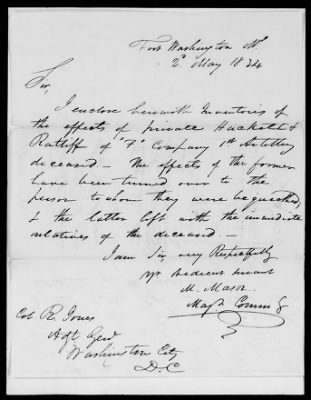 Fort Washington Md.
2d May 1834
Sir,
I enclose herewith Inventories of
the effects of private Hackett &
Ratliff of "F" Company 1st Artillery
deceased — The effects of the former
have been turned over to the
person to whom they were bequeathed,
& the latter left with the immediate
relatives of the deceased —
I am Sir very Respectfully
Yr obedient servant
M. Mason
Maj. Comm'g
Col R. Jones
Adjt Genl
Washington City
D.C